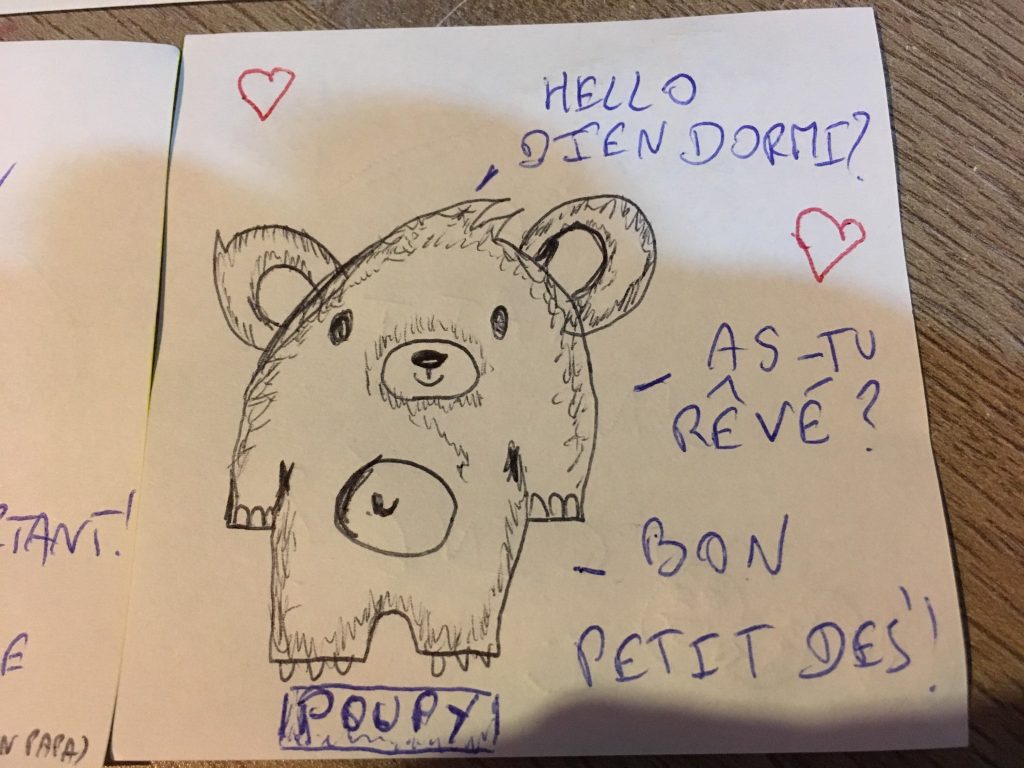 HELLO
BIEN DORMI?
- AS-TU
RÊVÉ ?
- BON
PETIT DES'!
POUPY
TANT!
E
N PAPA)